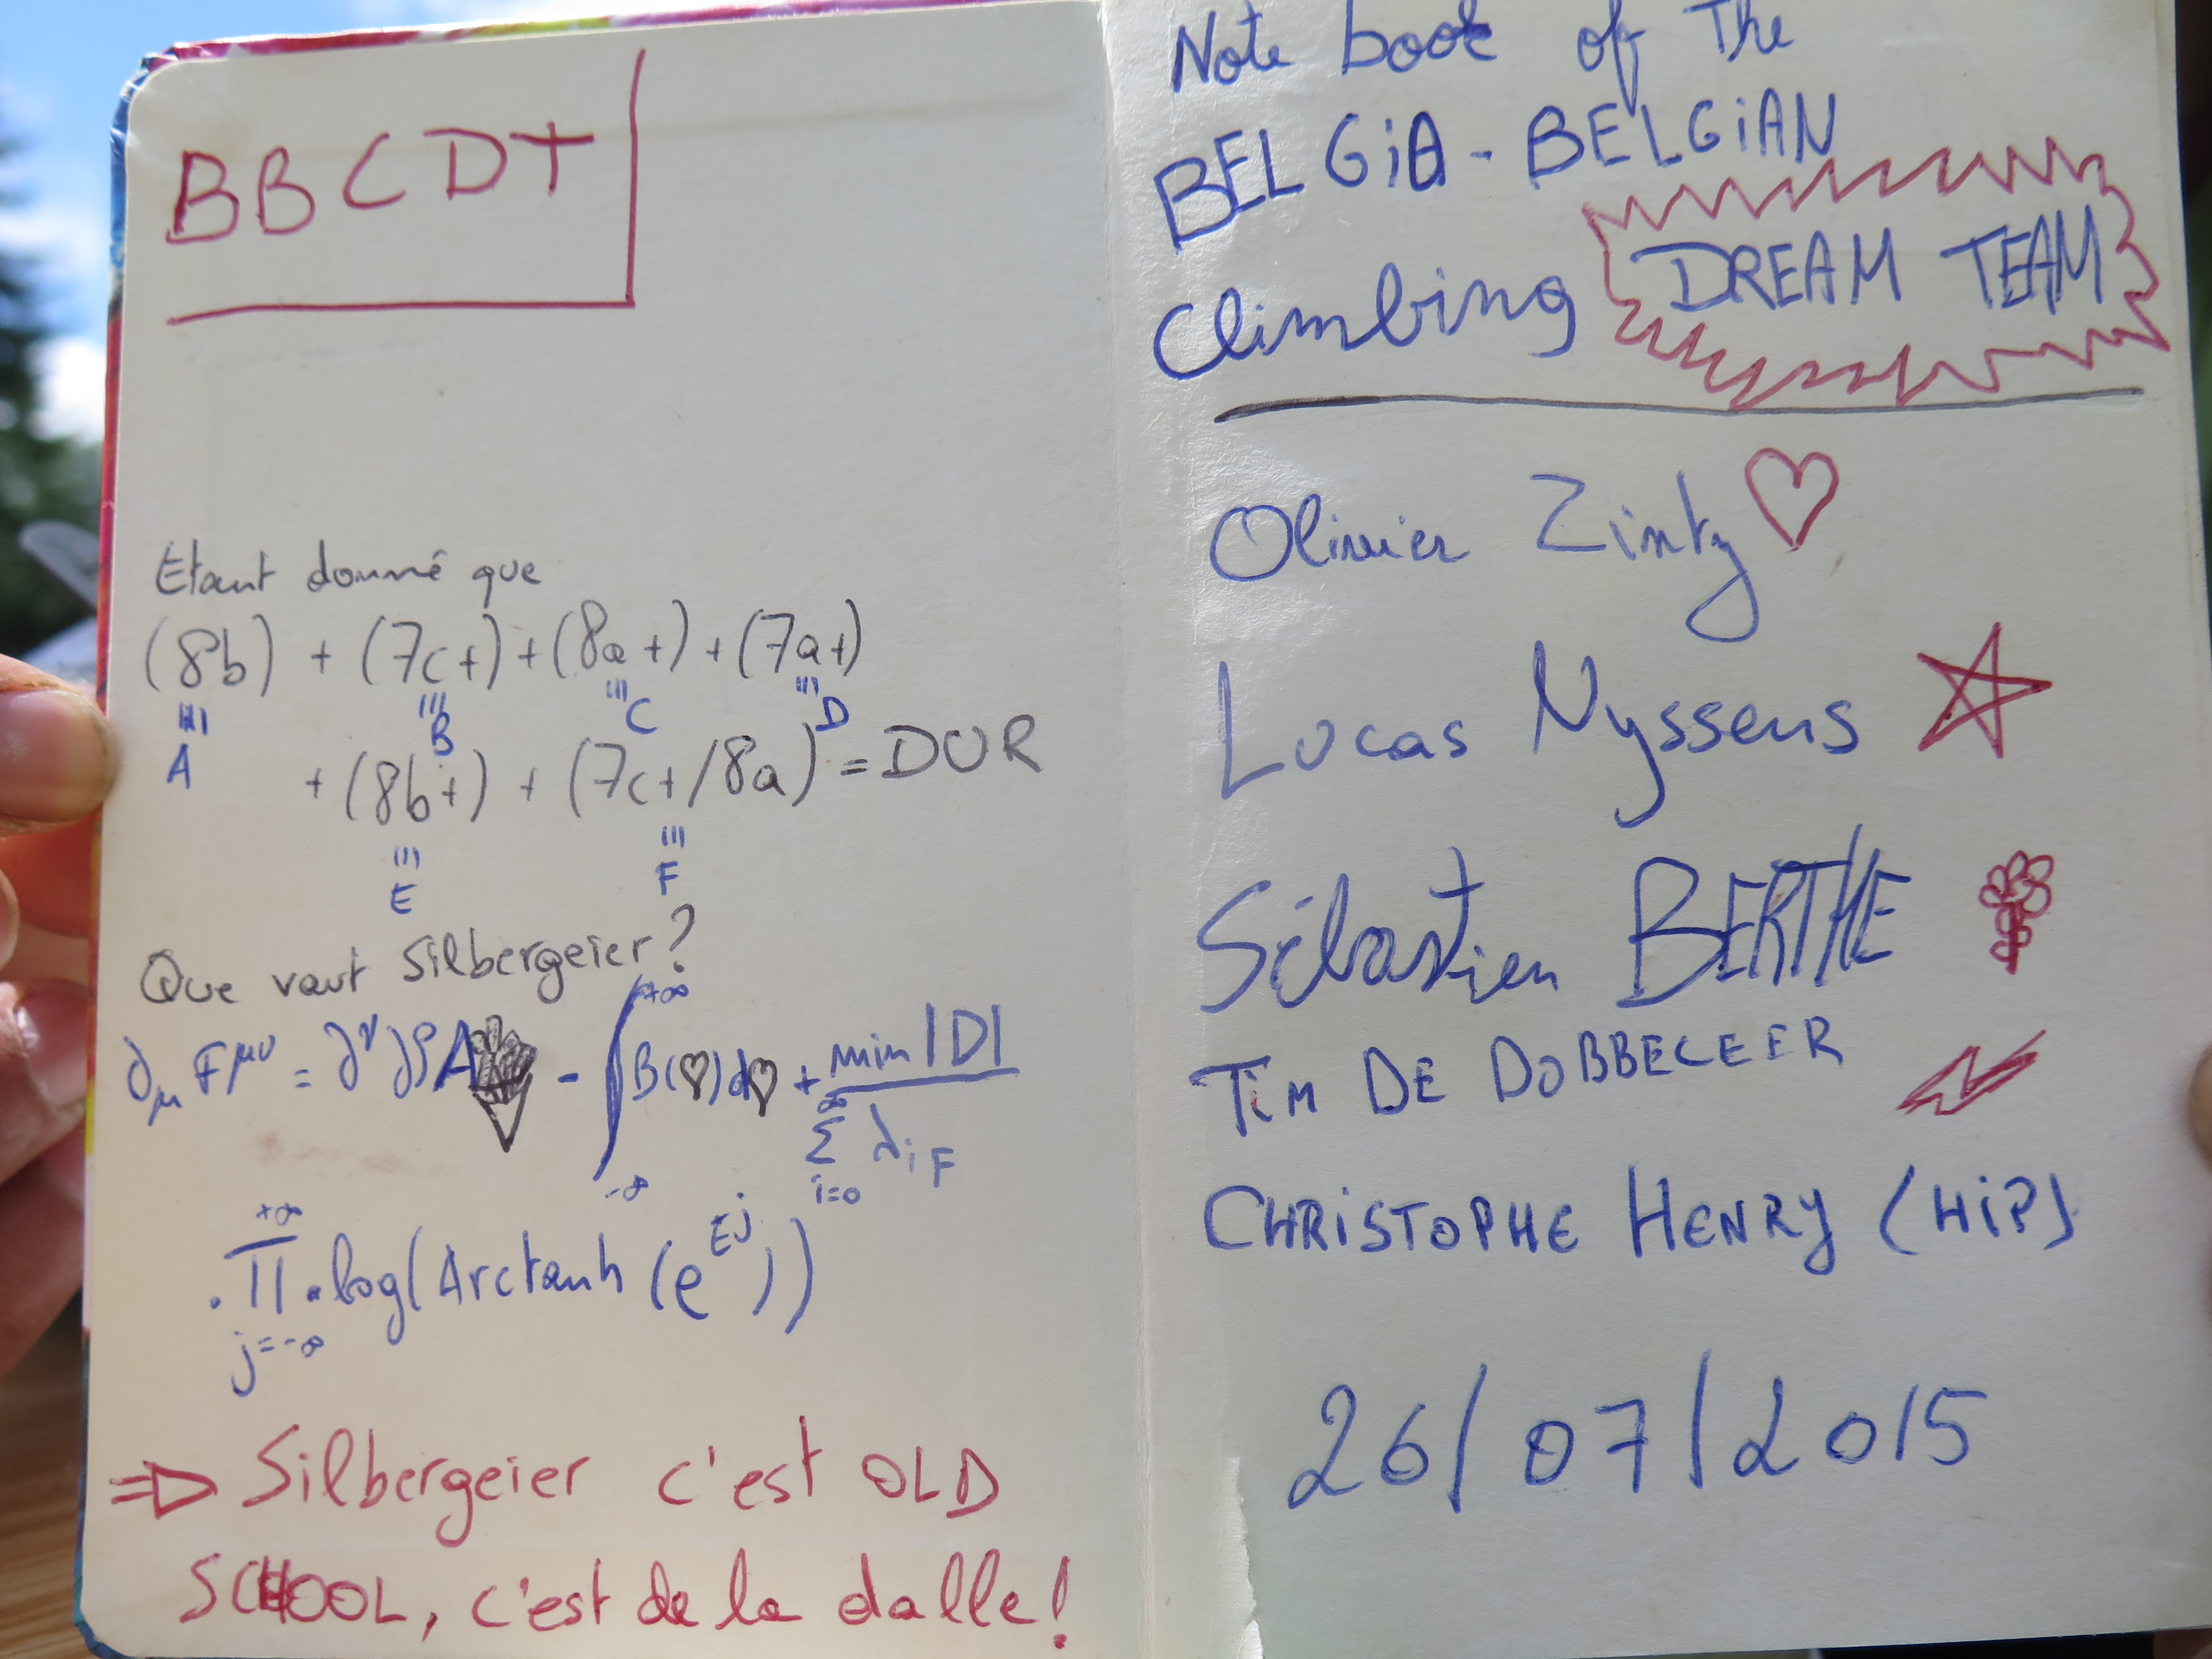 BBCDT
Etant donné que
(8b) + (7c+) + (8a+) + (7a+)
≡ A ≡ B ≡ C ≡ D
+ (8b+) + (7c+/8a) = DUR
≡ E ≡ F
Que vaut Silbergeier?
∂μ F^μν = ∂^ν ∂^ρ A - ∫_{-∞}^{+∞} B(♡)d♡ + min|D| / ∑_{i=0}^{∞} λ_i F
. ∏_{j=-∞}^{+∞} . log(Arctanh(e^{Ej}))
⇒ Silbergeier c'est OLD
SCHOOL, c'est de la dalle!
Note book of The
BELGiA - BELGiAN
Climbing DREAM TEAM
Olivier Zintz ♡
Lucas Nyssens
Sébastien BERTHE
TiM DE DOBBELEER
CHRiSTOPHE HENRY (HiP)
26/07/2015